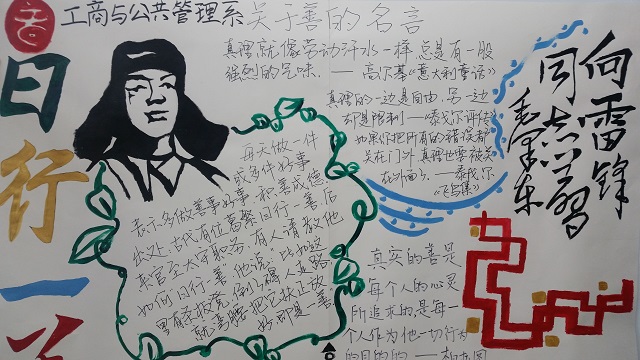 工商与公共管理系
日行一
关于善的名言
真理就像劳动汗水一样总是有一股
强烈的咒味.——高尔基《意大利童话》
真理的一边是自由，另一边
却是限制——泰戈尔评传
如果你把所有的错误都
关在门外真理也要被关
在外面了.——泰戈尔
《飞鸟集》
向雷锋
同志学习
毛泽东
每天做一件
或多件好事
表示多做善事好事,积善成德.
此处,古代有位葛繁日行一善后
来官至太守职务.有人请教他
如何日行一善.他说:比如这
里有
就弯腰把它扶正放
好即是一善.
真实的善是
每个人的心灵
所追求的是每一
个人作为他一切行为
的目的的——柏拉图